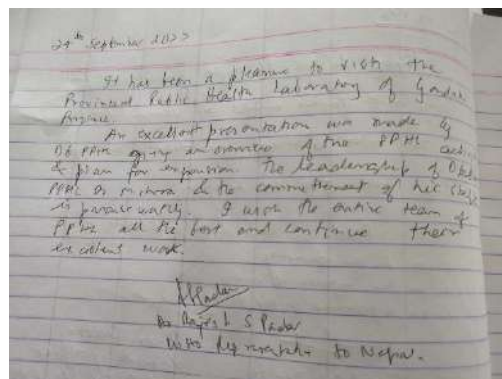 24th September 2022
It has been a pleasure to visit the
Provincial Public Health Laboratory of
Province.
An excellent presentation was made by
PPHL giving an overview of the PPHL
& plan for expansion. The leadership of
PPHL & the commitment of her staff
is praiseworthy. I wish the entire team of
PPHL all the best and continue their
excellent work.
Dr Rajesh S
WHO Representative to Nepal.